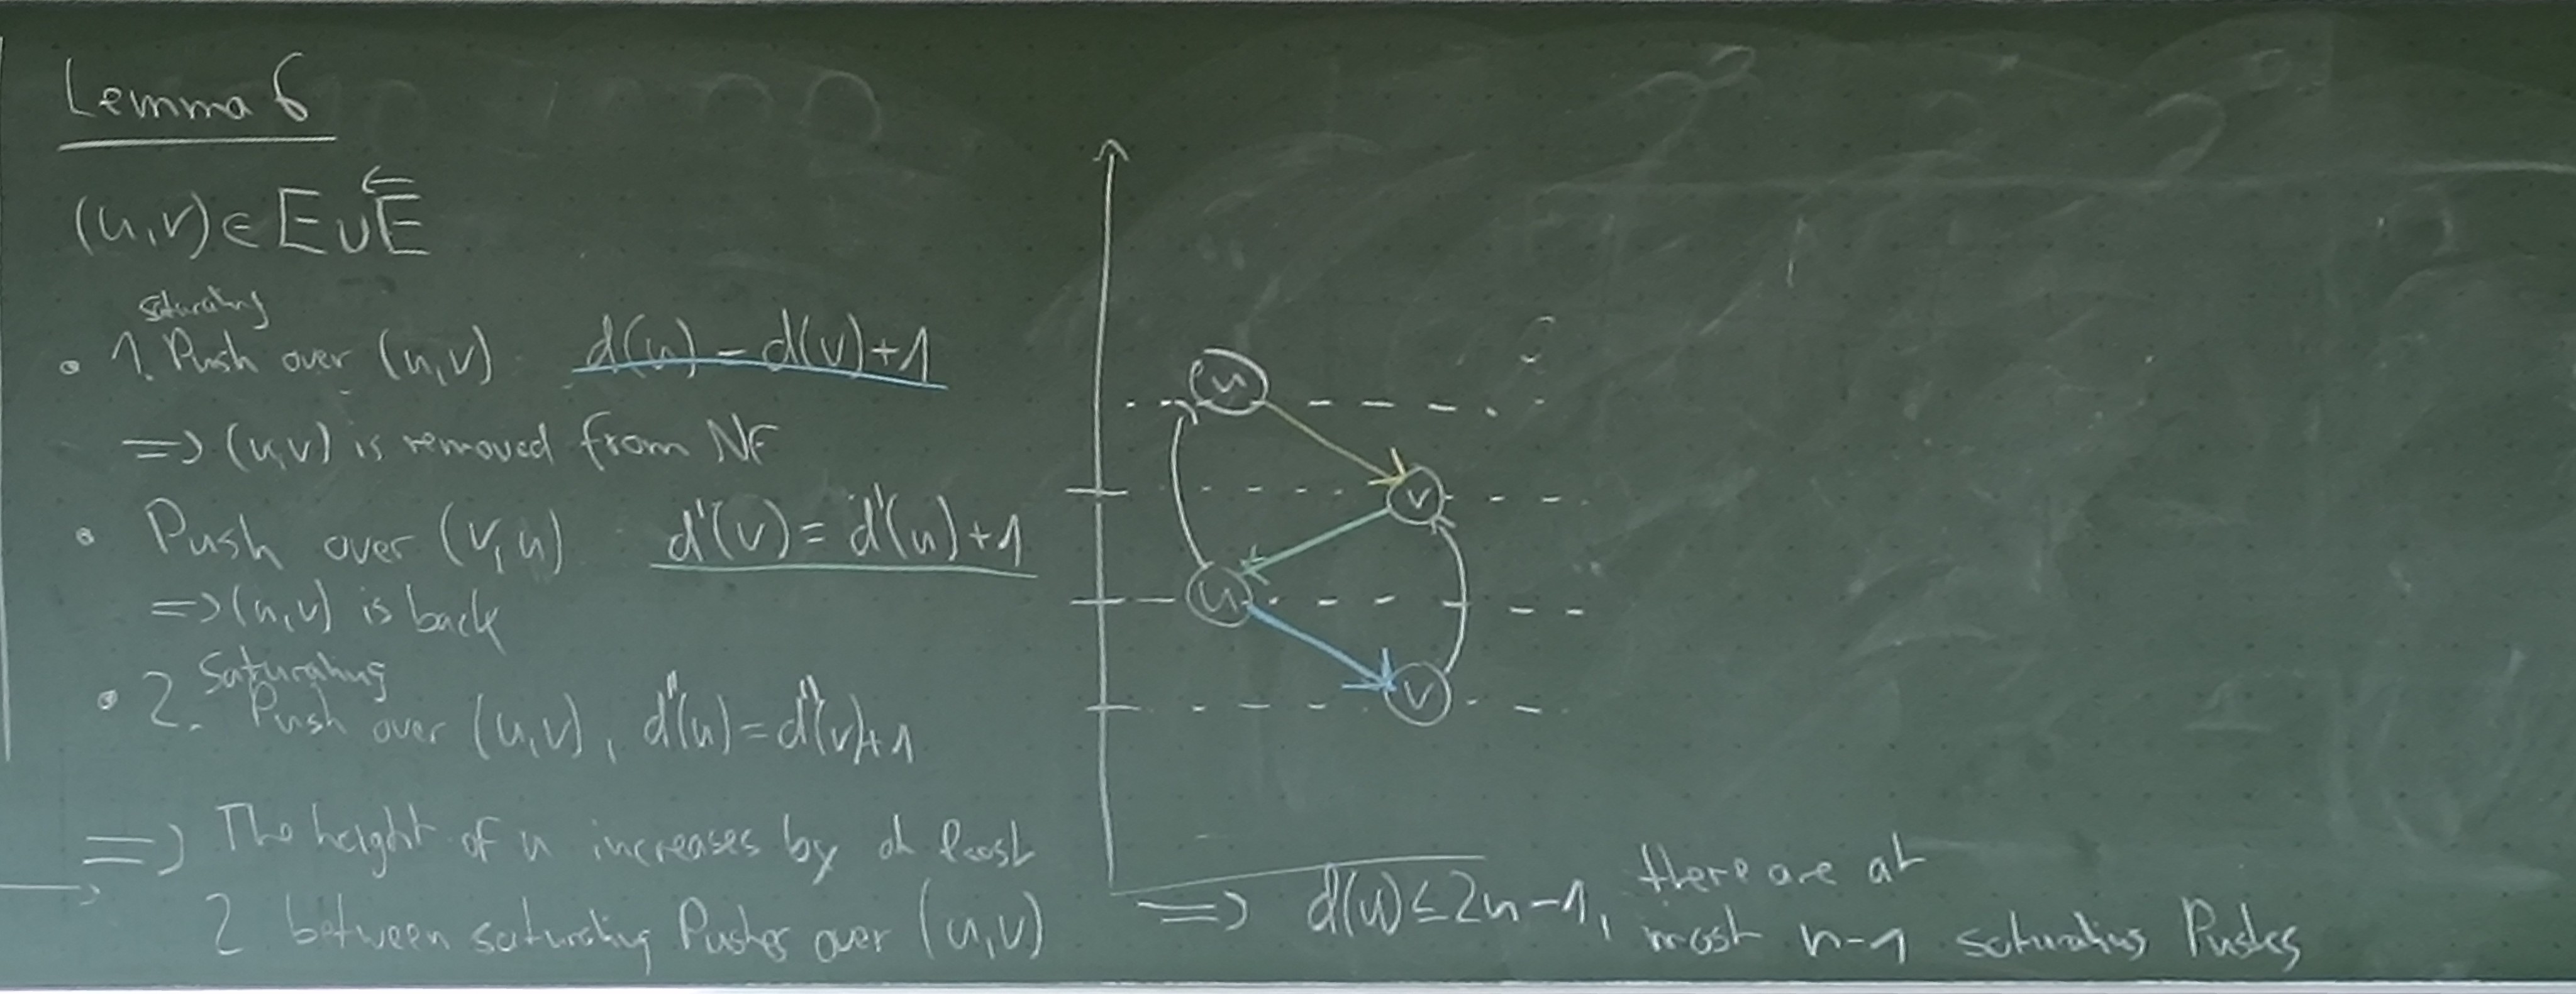 Lemma 6
(u,v) ∈ E ∪ E⃖
saturating
• 1. Push over (u,v) d(u) - d(v)+1
=> (u,v) is removed from NF
• Push over (v,u) d'(v) = d'(u)+1
=> (u,v) is back
saturating
• 2. Push over (u,v), d''(u) = d''(v)+1
=> The height of u increases by at least
2 between saturating Pushes over (u,v)
u
v
u
v
=> d(u) ≤ 2n-1, there are at
most n-1 saturating Pushes